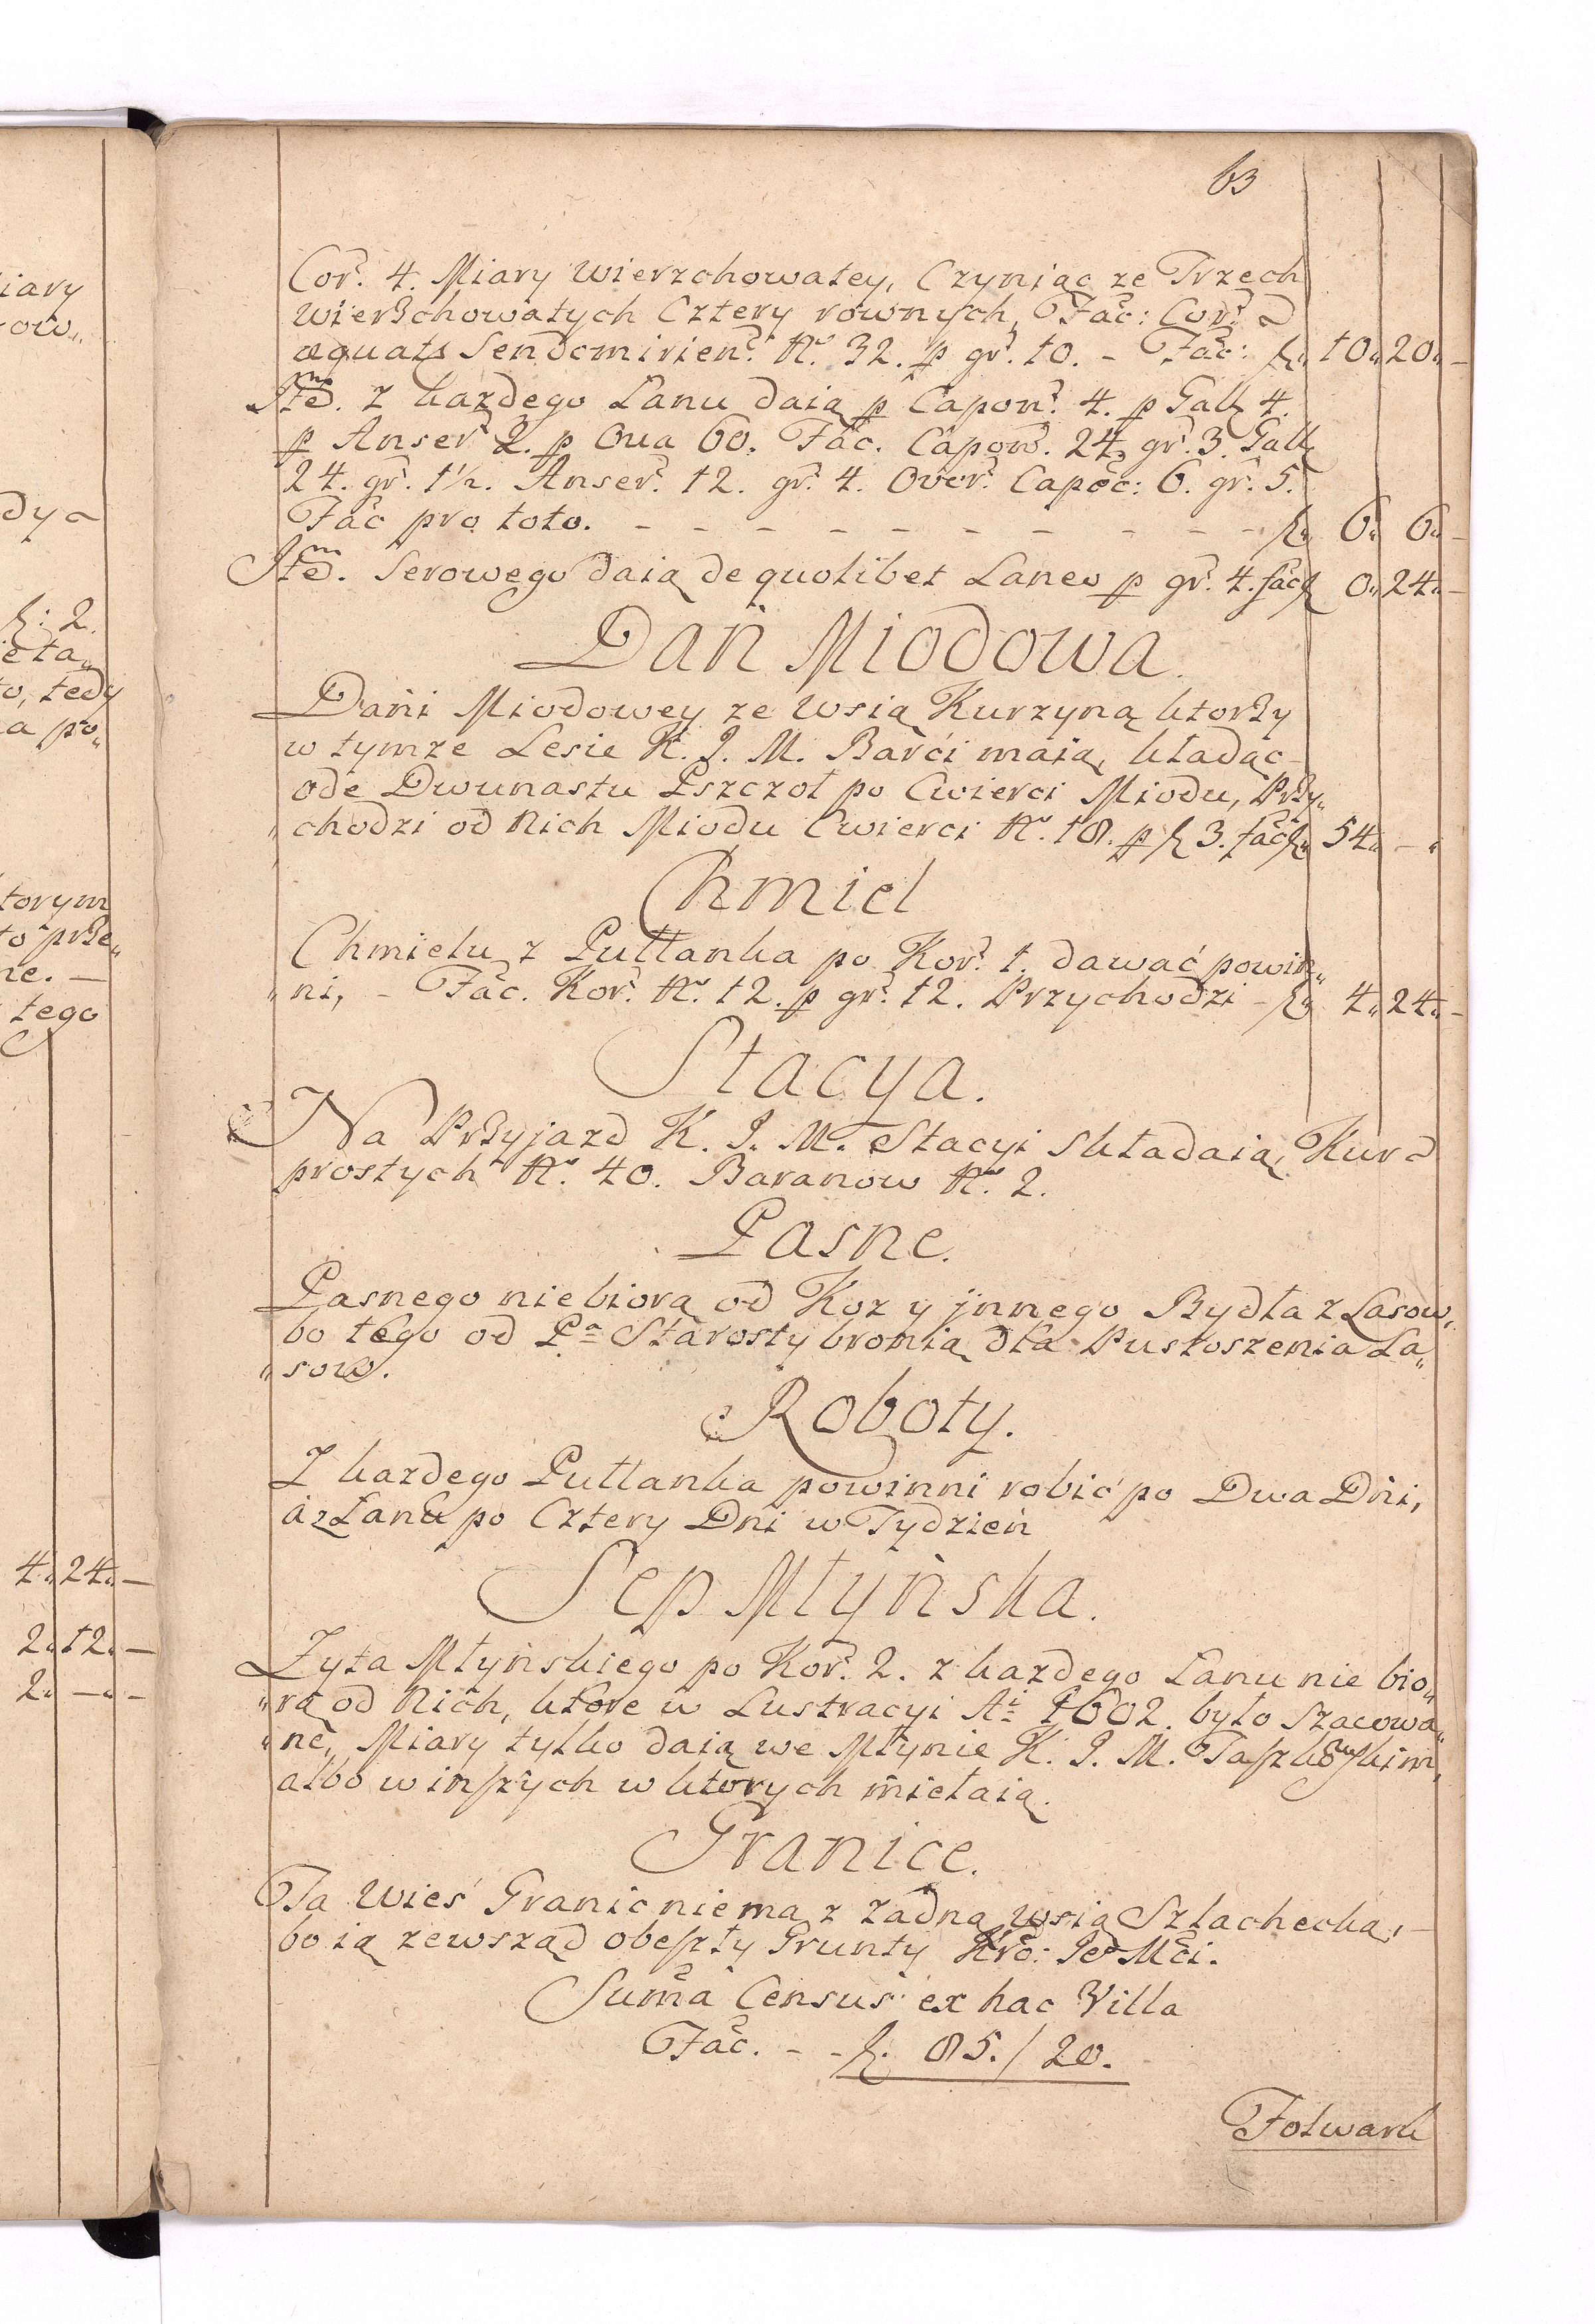 iary
row„
dy a
f: 2.
ieta„
to, tedy
a po„
torym
to prze„
ne. —
tego
4„ 24„ —
2„ 12„ —
2„ — „ —
63
Cor. 4. Miary wierzchowatey, Czyniąc ze Trzech
wierzchowatych Cztery rownych, Fac: Cor:
æquat Sendomirien. No. 32. p gr. 10. - Fac: f„ 10„ 20„ —
Item. z kazdego Lanu daią p Capon. 4. p Gall 4.
p Anser 2. p Oua 60. Fac. Capon. 24, gr. 3. Gall
24. gr. 1½. Anser. 12. gr. 4. Over. Capoc: 6. gr. 5.
Fac pro toto. — — — — — — — — — f„ 6„ 6„ —
Item. Serowego daią de quolibet Laneo p gr. 4. fac f 0„ 24„ —
Dań Miodowa.
Dani Miodowey ze wsią Kurzyną ktorzy
w tymze Lesie K. J. M. Barći maią, kładąc
ode Dwunastu Pszczoł po Cwierci Miodu, Przy„
„chodzi od Nich Miodu Cwierci No. 18. p f 3. fac f„ 54„ — „
Chmiel
Chmielu z Pułłanka po Kor. 1. dawać powin„
„ni, - Fac. Kor. No. 12. p gr. 12. Przychodzi - f„ 4„ 24„ —
Stacya.
Na Przyjazd K. J. M. Stacyi składaią, Kur
prostych No. 40. Baranow No. 2.
Pasne.
Pasnego niebiorą od Koz y jnnego Bydła z Lasow,
bo tego od Pa Starosty bronią dla Pustoszenia La„
„sow.
Roboty.
Z kazdego Pułłanka powinni robić po Dwa Dni,
á z Łanu po Cztery Dni w Tydzień
Sep Młyńska.
Zyta Młyńskiego po Kor. 2. z kazdego Lanu nie bio„
„rą od Nich, ktore w Lustracyi Ai 1602. było szacowa„
„ne, Miary tylko daią we Młynie K. J. M.
albo w inszych w ktorych mielaią.
Granice.
Ta Wieś Granic niema z zadną wsią Szlachecką, —
bo ią zewsząd obeszły Grunty Kro: Je Mci.
Suma Census ex hac Villa
Fac. - - f. 85./ 20.
Folwark